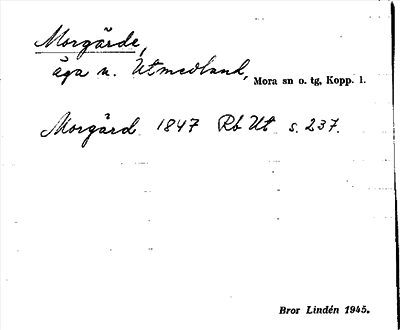 Morgårde,
äga n. Utmedland, Mora sn o. tg, Kopp. l.
Morgård 1847 Rb Ut s. 237.
Bror Lindén 1945.